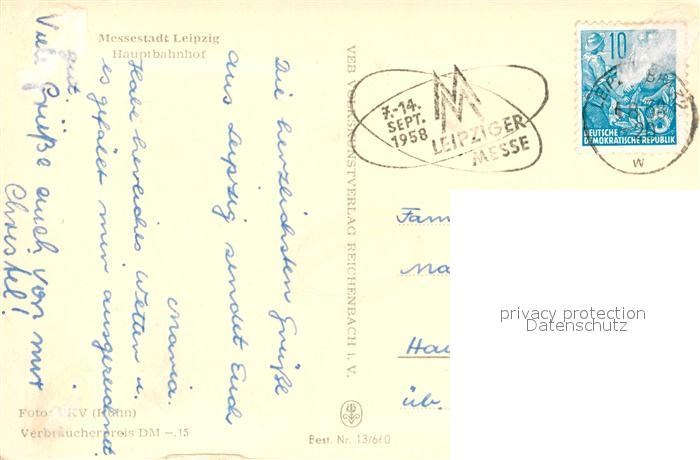 Messestadt Leipzig
Hauptbahnhof
Die herzlichsten Grüße
aus Leipzig sendet Euch
Maria.
Habe herrliches Wetter u.
es gefällt mir ausgezeichnet
gut.
Viele Grüße auch von mir
Christel!
Foto: VKV (Hahn)
Verbraucherpreis DM –.15
VEB VOLKSKUNSTVERLAG REICHENBACH i. V.
Best. Nr. 13/660
7.-14.
SEPT.
1958
MM
LEIPZIGER
MESSE
10
DEUTSCHE
DEMOKRATISCHE REPUBLIK
LEIPZIG
w
Fam
Ma
Hau
üb.
privacy protection
Datenschutz